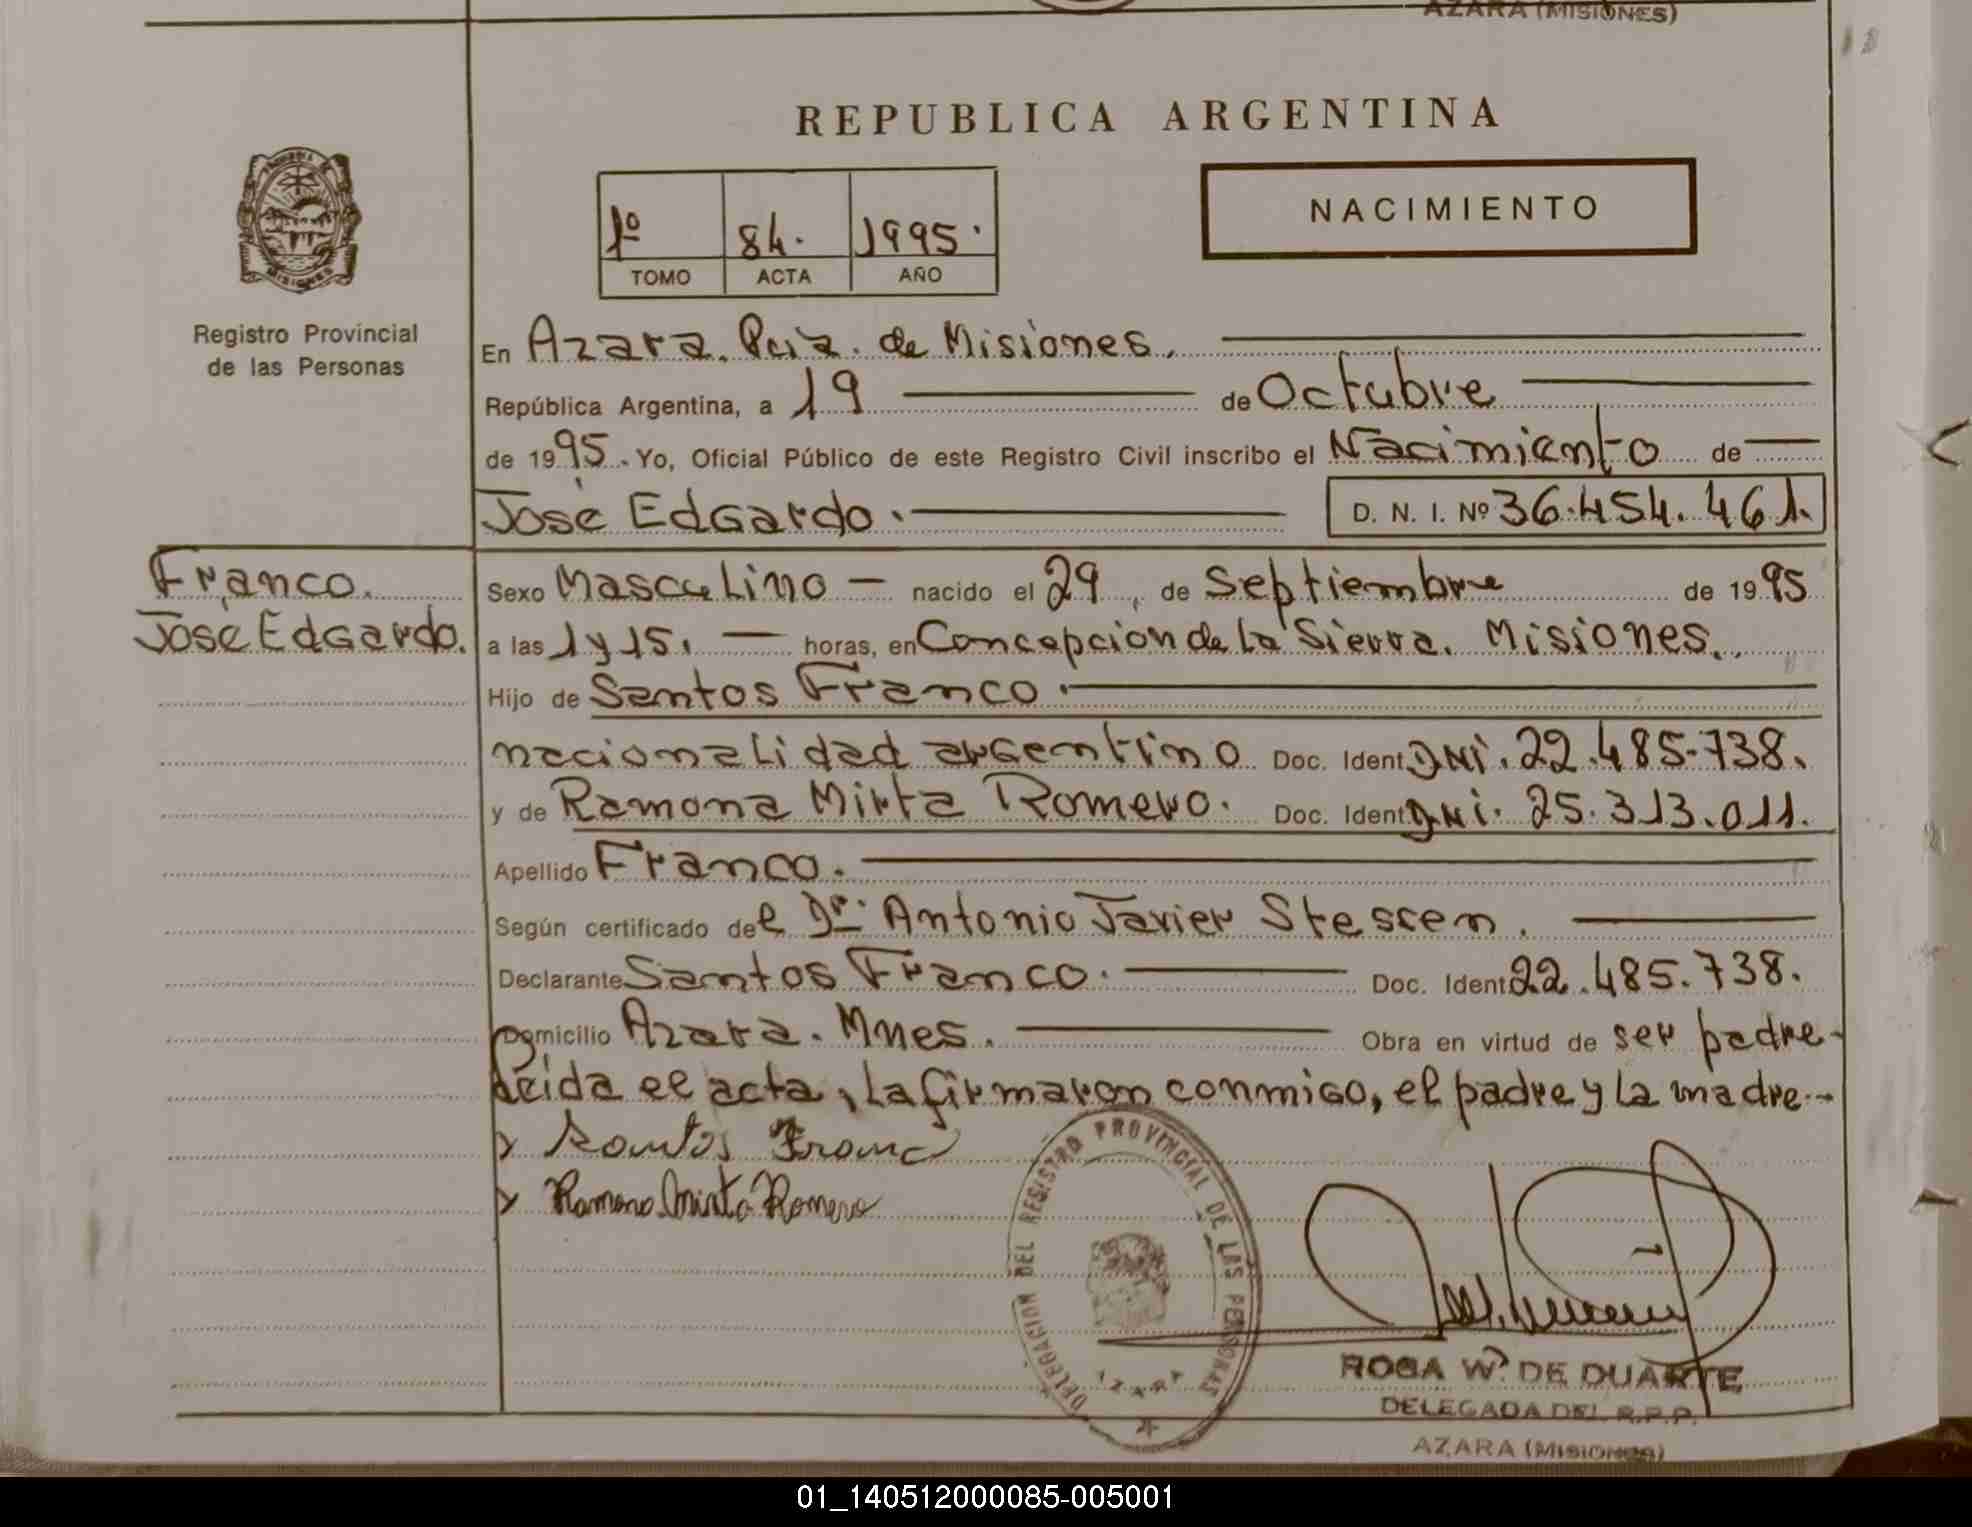 AZARA (MISIONES)
REPUBLICA ARGENTINA
NACIMIENTO
1º 84. 1995.
TOMO ACTA AÑO
MISIONES
Registro Provincial
de las Personas
En Azara. Pcia. de Misiones.
República Argentina, a 19 de Octubre
de 1995. Yo, Oficial Público de este Registro Civil inscribo el Nacimiento de
José Edgardo. D. N. I. Nº 36.454.461.
Franco.
Jose Edgardo.
Sexo Masculino — nacido el 29, de Septiembre de 1995
a las 1 y 15. — horas, en Concepcion de la Sierra. Misiones.
Hijo de Santos Franco.
nacionalidad argentino Doc. Ident. DNI. 22.485.738.
y de Ramona Mirta Romero. Doc. Ident. DNI. 25.313.011.
Apellido Franco.
Según certificado del Dr. Antonio Javier Stessen.
Declarante Santos Franco. Doc. Ident. 22.485.738.
Domicilio Azara. Mnes. Obra en virtud de ser padre-
Leida el acta, la firmaron conmigo, el padre y la madre.-
Santos Franc
Ramona Mirta Romero
DELEGACION DEL REGISTRO PROVINCIAL DE LAS PERSONAS
AZARA
ROSA W. DE DUARTE
DELEGADA DEL R.P.P.
AZARA (MISIONES)
01_140512000085-005001